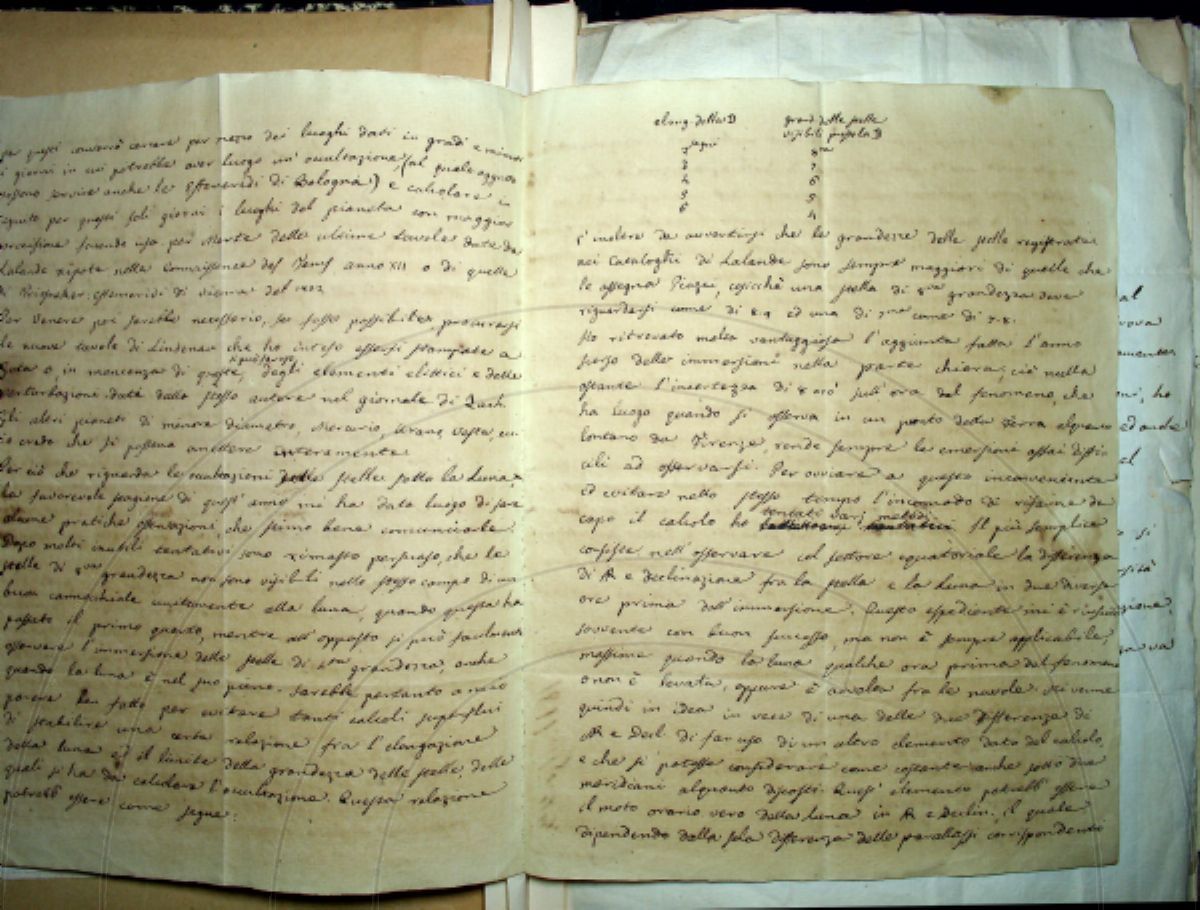 per questi converrà cercare per mezzo dei luoghi dati in gradi e minuti
i giorni in cui potrebbe aver luogo un' occultazione, (al quale oggetto
possono servire anche le Effemeridi di Bologna) e calcolare in
seguito per questi soli giorni i luoghi del pianeta con maggior
precisione facendo uso per Marte delle ultime tavole date da
Lalande nella Connaissance des Tems anno XII o di quelle
di effemeridi di Vienna del
Per Venere poi sarebbe necessario, se fosse possibile, procurarsi
le nuove tavole di Lindenau che ho inteso essersi stampate a
Gota o, in mancanza di queste, degli elementi elittici e delle
perturbazioni date dallo stesso autore nel giornale di Zach.
Gli altri pianeti di minore diametro, Mercurio, Urano, Vesta, ec.
io credo che si possano omettere interamente.
Per ciò che riguarda le occultazioni delle stelle sotto la Luna,
la favorevole stagione di quest' anno mi ha dato luogo di fare
alcune pratiche osservazioni, che stimo bene comunicarle.
Dopo molti inutili tentativi sono rimasto persuaso, che le
stelle di 8va grandezza non sono visibili nello stesso campo di un
buon cannocchiale unitamente alla luna, quando questa ha
passato il primo quarto, mentre all' opposto si può facilmente
osservare l'immersione delle stelle di 4ta grandezza, anche
quando la luna è nel suo pieno. Sarebbe pertanto a mio
parere ben fatto per evitare tanti calcoli superflui
di stabilire una certa relazione fra l'elongazione
della luna ed il limite della grandezza delle stelle, delle
quali si ha da calcolare l'occultazione. Questa relazione
potrebb' essere come segue:
elong. della D grand. delle stelle
visibili presso la D
segni 8va
3 7
4 6
5 5
6 4
E' inoltre da avvertirsi che le grandezze delle stelle registrate
nei Cataloghi di Lalande sono sempre maggiori di quelle che
le assegna Piazzi, cosicchè una stella di 8va grandezza deve
riguardarsi come di 8.9 ed una di 7ma come di 7.8.
Ho ritrovato molto vantaggiosa l'aggiunta fatta l'anno
scorso delle immersioni nella parte chiara; ciò nulla
ostante l'incertezza di sull' ora del fenomeno, che
ha luogo quando si osserva in un punto della Terra alquanto
lontano da Firenze, rende sempre le emersioni assai diffi-
cili ad osservarsi. Per ovviare a questo inconveniente
ed evitare nello stesso tempo l'incomodo di rifarne da
capo il calcolo ho tentati vari metodi. Il più semplice
consiste nell' osservare col settore equatoriale la differenza
di AR e declinazione fra la stella e la Luna in due diverse
ore prima dell' immersione. Questo espediente mi è riuscito
sovvente con buon successo, ma non è sempre applicabile,
massime quando la luna qualche ora prima del fenomeno
o non è levata, oppure è avvolta fra le nuvole. Mi venne
quindi in idea in vece di una delle due differenze di
AR e Decl. di far uso di un altro elemento dato dal calcolo,
e che si potesse considerare come costante anche sotto due
meridiani alquanto discosti. Quest' elemento potrebb' essere
il moto orario vero della luna in AR e Declin., il quale
dipendendo dalla sola differenza delle parallassi corrispondenti